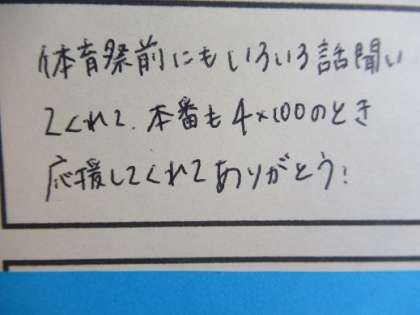 体育祭前にもいろいろ話聞い
てくれて、本番も4×100のとき
応援してくれてありがとう!